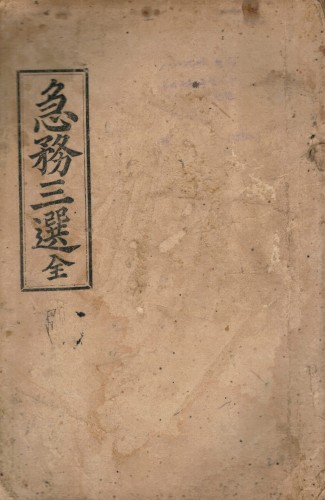 急務三選全